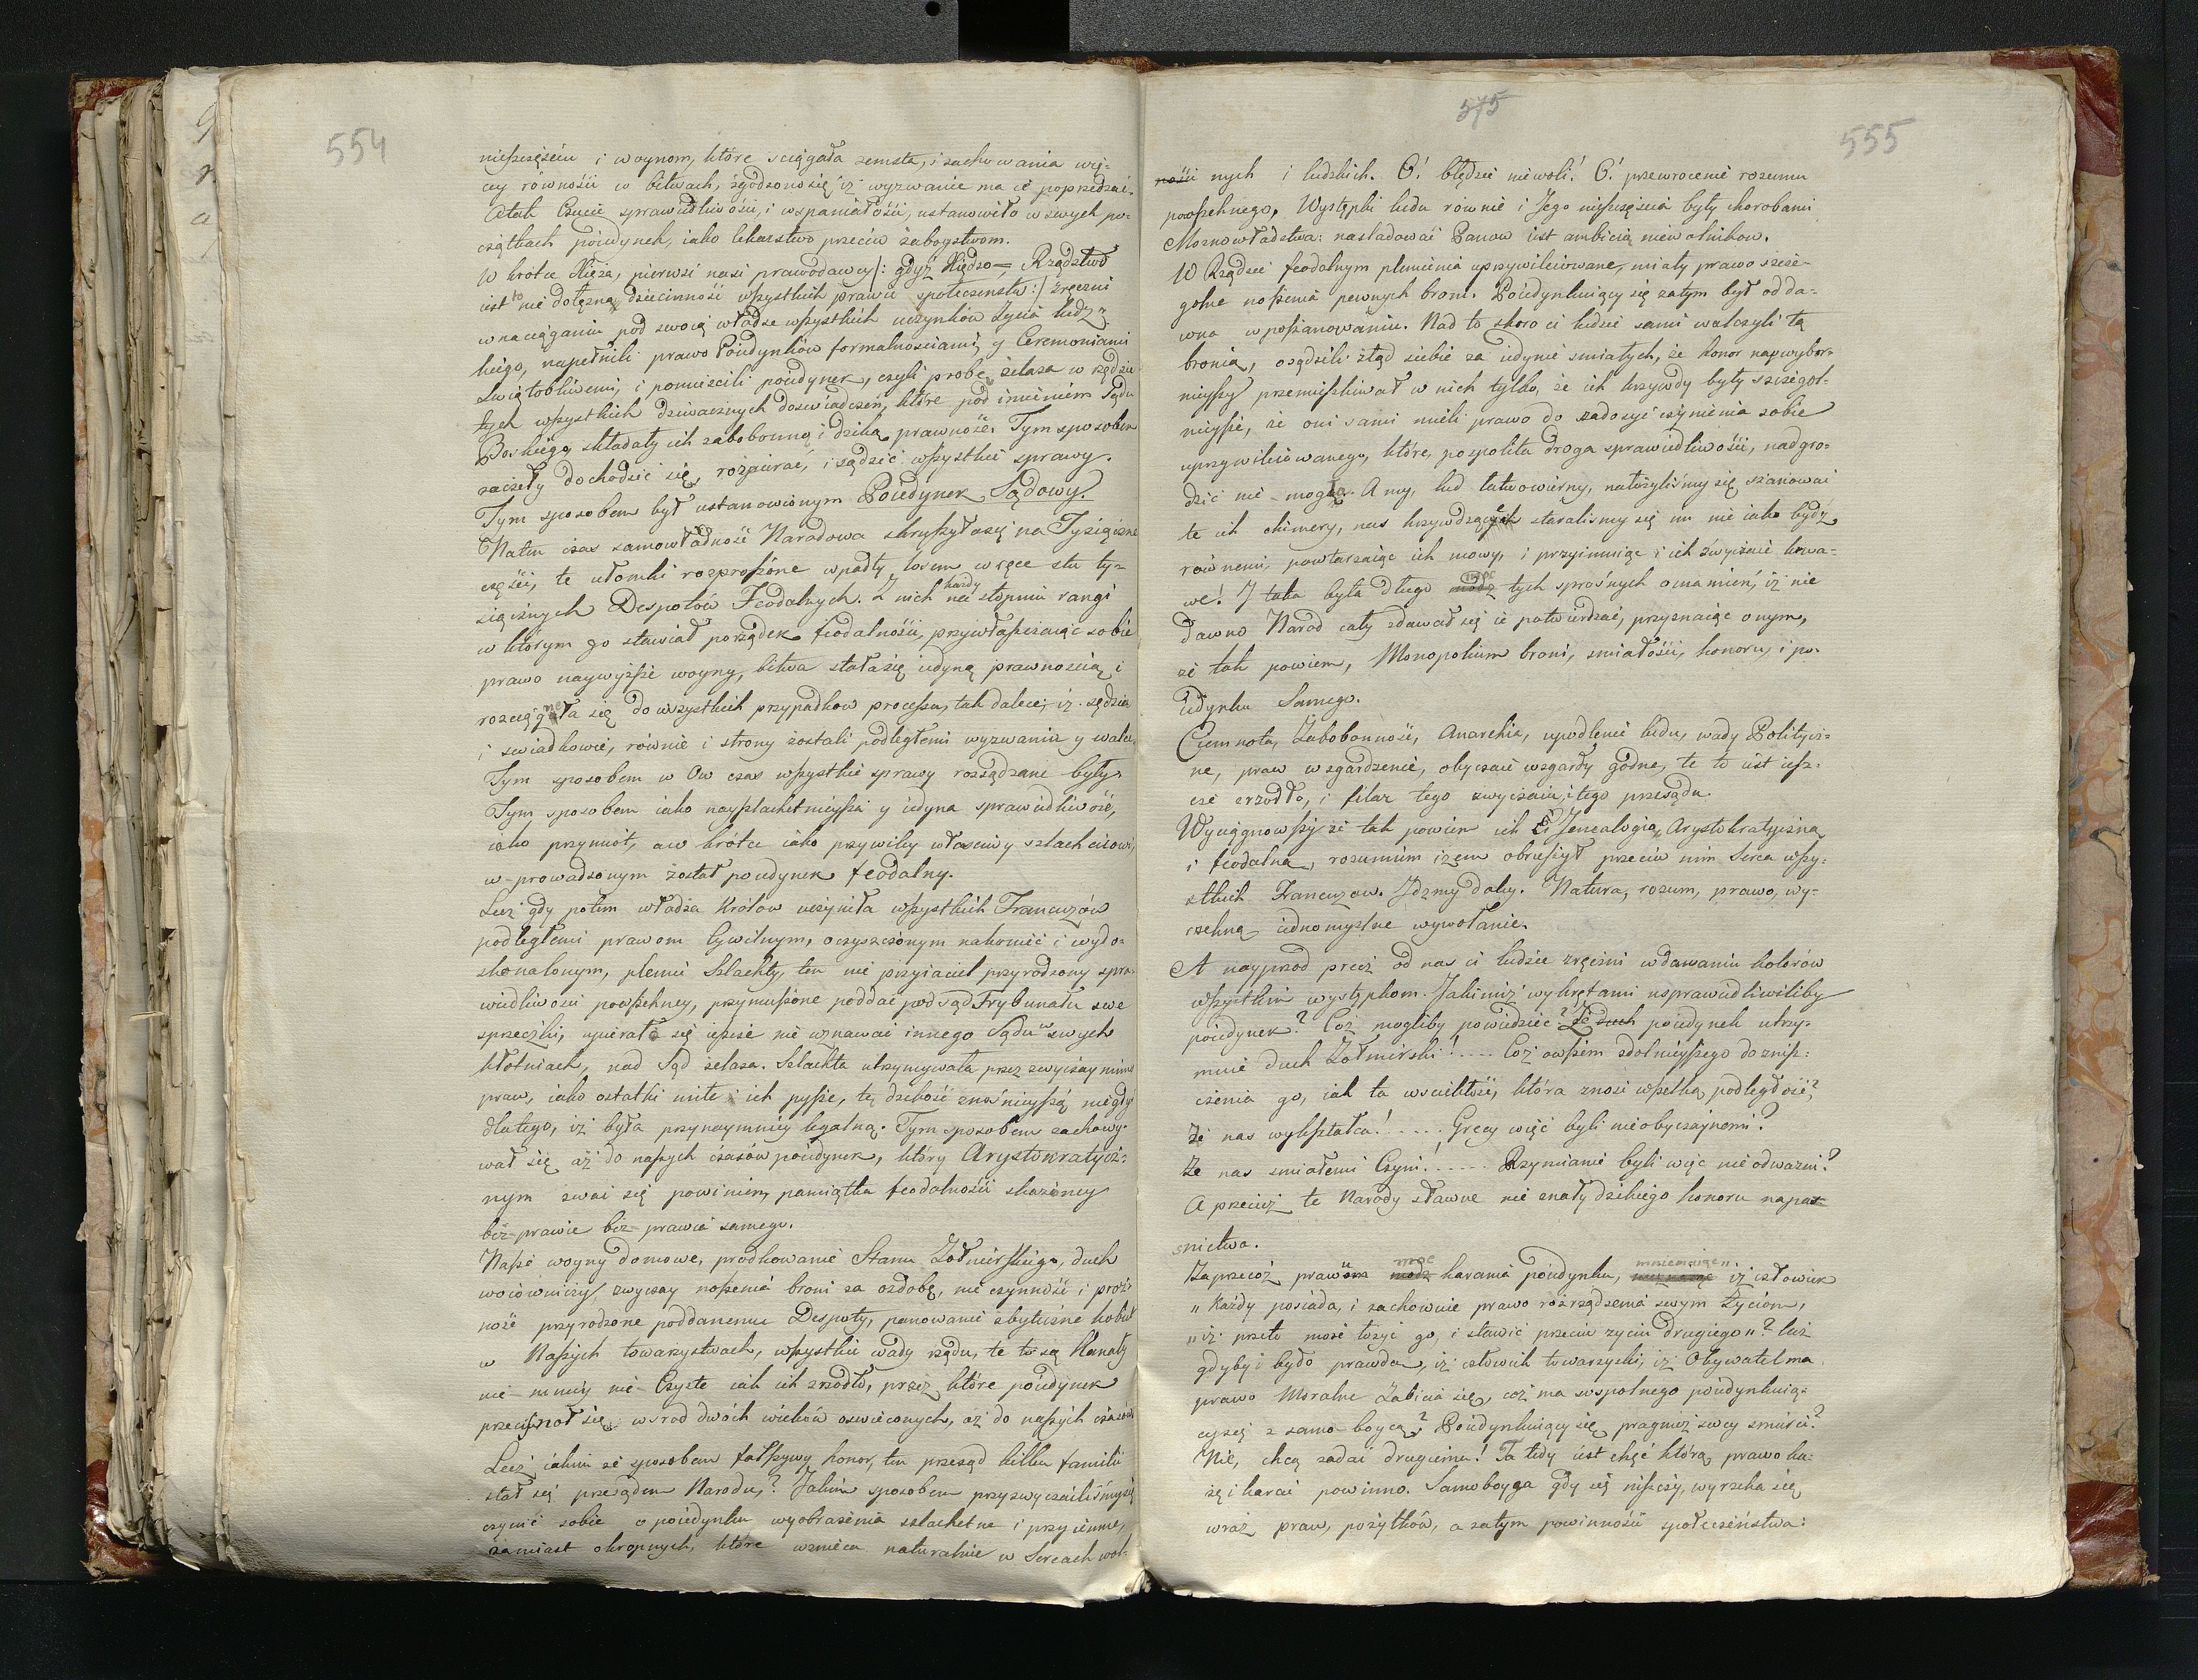 554
nieszczęściu i woynom, które sciągała zemsta, i zachowania wię-
cey równości w bitwach, zgodzono się iż wyzwanie ma ie poprzedzać.
Atak Czucie sprawiedliwości, i wspaniałości, ustanowiło w swych po-
czątkach poiedynek, iako lekarstwo przeciw zabóystwom.
W krótce Xięża, pierwsi nasi prawodawcy /: gdyż Xiędzo-Rządztwo
iest to nie dołężną dziecinność wszystkich prawie społeczenstw :/ zręczni
w naciąganiu pod swoią władze wszystkich uczynków życia ludz-
kiego, napełnili prawo Poiedynków formalnościami, y Ceremoniami
Swiątobliwemi, i pomieścili poiedynek, czyli probę żelaza w rzędzie
tych wszystkich dziwacznych doświadczeń, które pod imieniem Sądu
Boskiego składały ich zabobonną i dziką prawność. Tym sposobem
zaczeły dochodzić się, rozpierać, i sądzić wszystkie sprawy.
Tym sposobem był ustanowionym Poiedynek Sądowy.
Naten czas samowładność Narodowa skruszyła się na Tysiączne
części, te ułomki rozproszone wpadły losem w ręce stu ty-
siącznych Despotów Feodalnych. Z nich każdy na stopniu rangi
w którym go stawiał porządek feodalności, przywłaszczaiąc sobie
prawo naywyższe woyny, bitwa stała się iedyną prawnością i
rozciągnęła się do wszystkich przypadkow processu, tak dalece, iż sędzia
i swiadkowie, równie i strony zostali podległemi wyzwania y walce,
Tym sposobem w Ow czas wszystkie sprawy rozsądzane były.
Tym sposobem iako nayszlachetnieysza y iedyna sprawiedliwość,
iako przymiot, a w krótce iako przywiley właściwy szlachcicowi,
w-prowadzonym został poiedynek feodalny.
Lecz gdy potem władza Królów uczyniła wszystkich Francuzów
podległemi prawom Cywilnym, oczyszczonym nakoniec i wydo-
skonalonym, plemie Szlachty, ten nie przyiaciel przyrodzony spra-
wiedliwosci powszechney, przymuszone poddać pod sąd Trybunału swe
sprzeczki, upierało się ieszcze nie uznawać innego Sądu w swych
kłotniach, nad Sąd żelaza. Szlachta utrzymywała przez zwyczay mimo
praw, iako ostatki miłe ich pysze, tę dzikość znośnieyszą niegdyś
dlatego, iż była przynaymniey legalną. Tym sposobem zachowy-
wał się aż do naszych czasów poiedynek, który Arystokratycz-
nym zwać się powinien, pamiątka feodalności skażoney
bez-prawie bez-prawia samego.
Nasze woyny domowe, prodkowanie Stanu Zołnierskiego, duch
woiowniczy, zwyczay noszenia broni za ozdobę, nie czynność i proż-
ność przyrodzone poddanemu Despoty, panowanie zbyteczne kobiet
w Naszych towarzystwach, wszystkie wady rządu, te to są Kanały
nie-mniey nie-Czyste iak ich zrzodło, przez które poiedynek
przecisnoł się wsrod dwóch wieków oswieconych, aż do naszych czasów
Lecz iakim że sposobem fałszywy honor, ten przesąd kilku familii
stał się przesądem Narodu? Jakim sposobem przyzwyczailiśmy się
czynić sobie o poiedynku wyobrażenia szlachetne i przyiemne,
zamiast okropnych, które wznieca naturalnie w Sercach wol-
575
555
ności nych i ludzkich. O! błędzie niewoli! O! przewrocenie rozumu
powszehnego, Występki ludu równie i Jego nieszczęścia były chorobami
Możnowładztwa: nasladować Panow iest ambicią niewolnikow.
W Rządzie feodalnym plemienia uprzywileiowane, miały prawo szcze-
golne noszenia pewnych broni. Poiedynkuiący się zatym był od da-
wna w poszanowaniu. Nad to skoro ci ludzie sami walczyli tą
bronią, osądzili ztąd siebie za iedynie smiałych, że honor naywybor-
nieyszy przemieszkiwał w nich tylko, że ich krzywdy były szczegol-
nieysze, że oni sami mieli prawo do zadosyć czynienia sobie
uprzywileiowanego, które, pospolita droga sprawiedliwości, nadgro-
dzić nie-mogła. A my, lud łatwowierny, nałożyliśmy się szanować
te ich chimery, nas krzywdzące staralismy się im nie iako bydz
równemi, powtarzaiąc ich mowy, i przyimuiąc i ich zwyczaie krwa-
we! I taka była długo modz moc tych sprośnych omamień, iż nie
dawno Narod cały zdawał się ie potwierdzać, przyznaiąc onym,
że tak powiem, Monopolium broni, smiałości, honoru, i po-
iedynku Samego.
Ciemnota, Zabobonność, Anarchia, upodlenie ludu, wady Politycz-
ne, praw wzgardzenie, obyczaie wzgardy godne, te to iest iesz-
cze zrzodło, i filar tego zwyczaiu, i tego przesądu.
Wyciągnowszy że tak powiem ich Jenealogią, Arystokratyczną
i feodalną, rozumiem iżem obruszył przeciw nim Serca wszy-
stkich Francuzow. Idzmy daley. Natura, rozum, prawo, wy-
rzekną iednomyslne wywołanie.
A nayprzod precz od nas ci ludzie zręczni w dawaniu kolorów
wszystkim występkom. Jakimiż wykrętami usprawiedliwiliby
poiedynek? Coż mogliby powiedzieć? Że duch poiedynek utrzy-
muie duch Żołnierski!.... Coż owszem zdolnieyszego do znisz-
czenia go, iak ta wsciekłość, która znosi wszelką podległość?
Że nas wykształca!.... Grecy więć byli nieobyczaynemi?
Że nas smiałemi Czyni!..... Rzymianie byli więc nie odważni?
A przecież te Narody sławne nie znały dzikiego honoru napa-
snictwa.
Zaprzecoż prawom modz moc karania poiedynku, mniemaiąc „ iż człowiek
„ każdy posiada, i zachownie prawo rozrządzenia swym Życiem,
„ iż przeto może łożyć go, i stawić przeciw zyciu drugiego „? lecz
gdyby i było prawda, iż człowiek towarzyski, iż Obywatel ma
prawo Moralne Zabicia się, coż ma wspolnego poiedynkuią-
cy się z samo-boycą? Poiedynkuiący się pragnież swey smierci?
Nie, chcą zadać drugiemu! Ta tedy iest chęć którą prawo ka-
żę i karać powinno. Samoboyca gdy się niszczy, wyrzeka się
wraz praw, pożytków, a zatym powinności społeczeństwa: